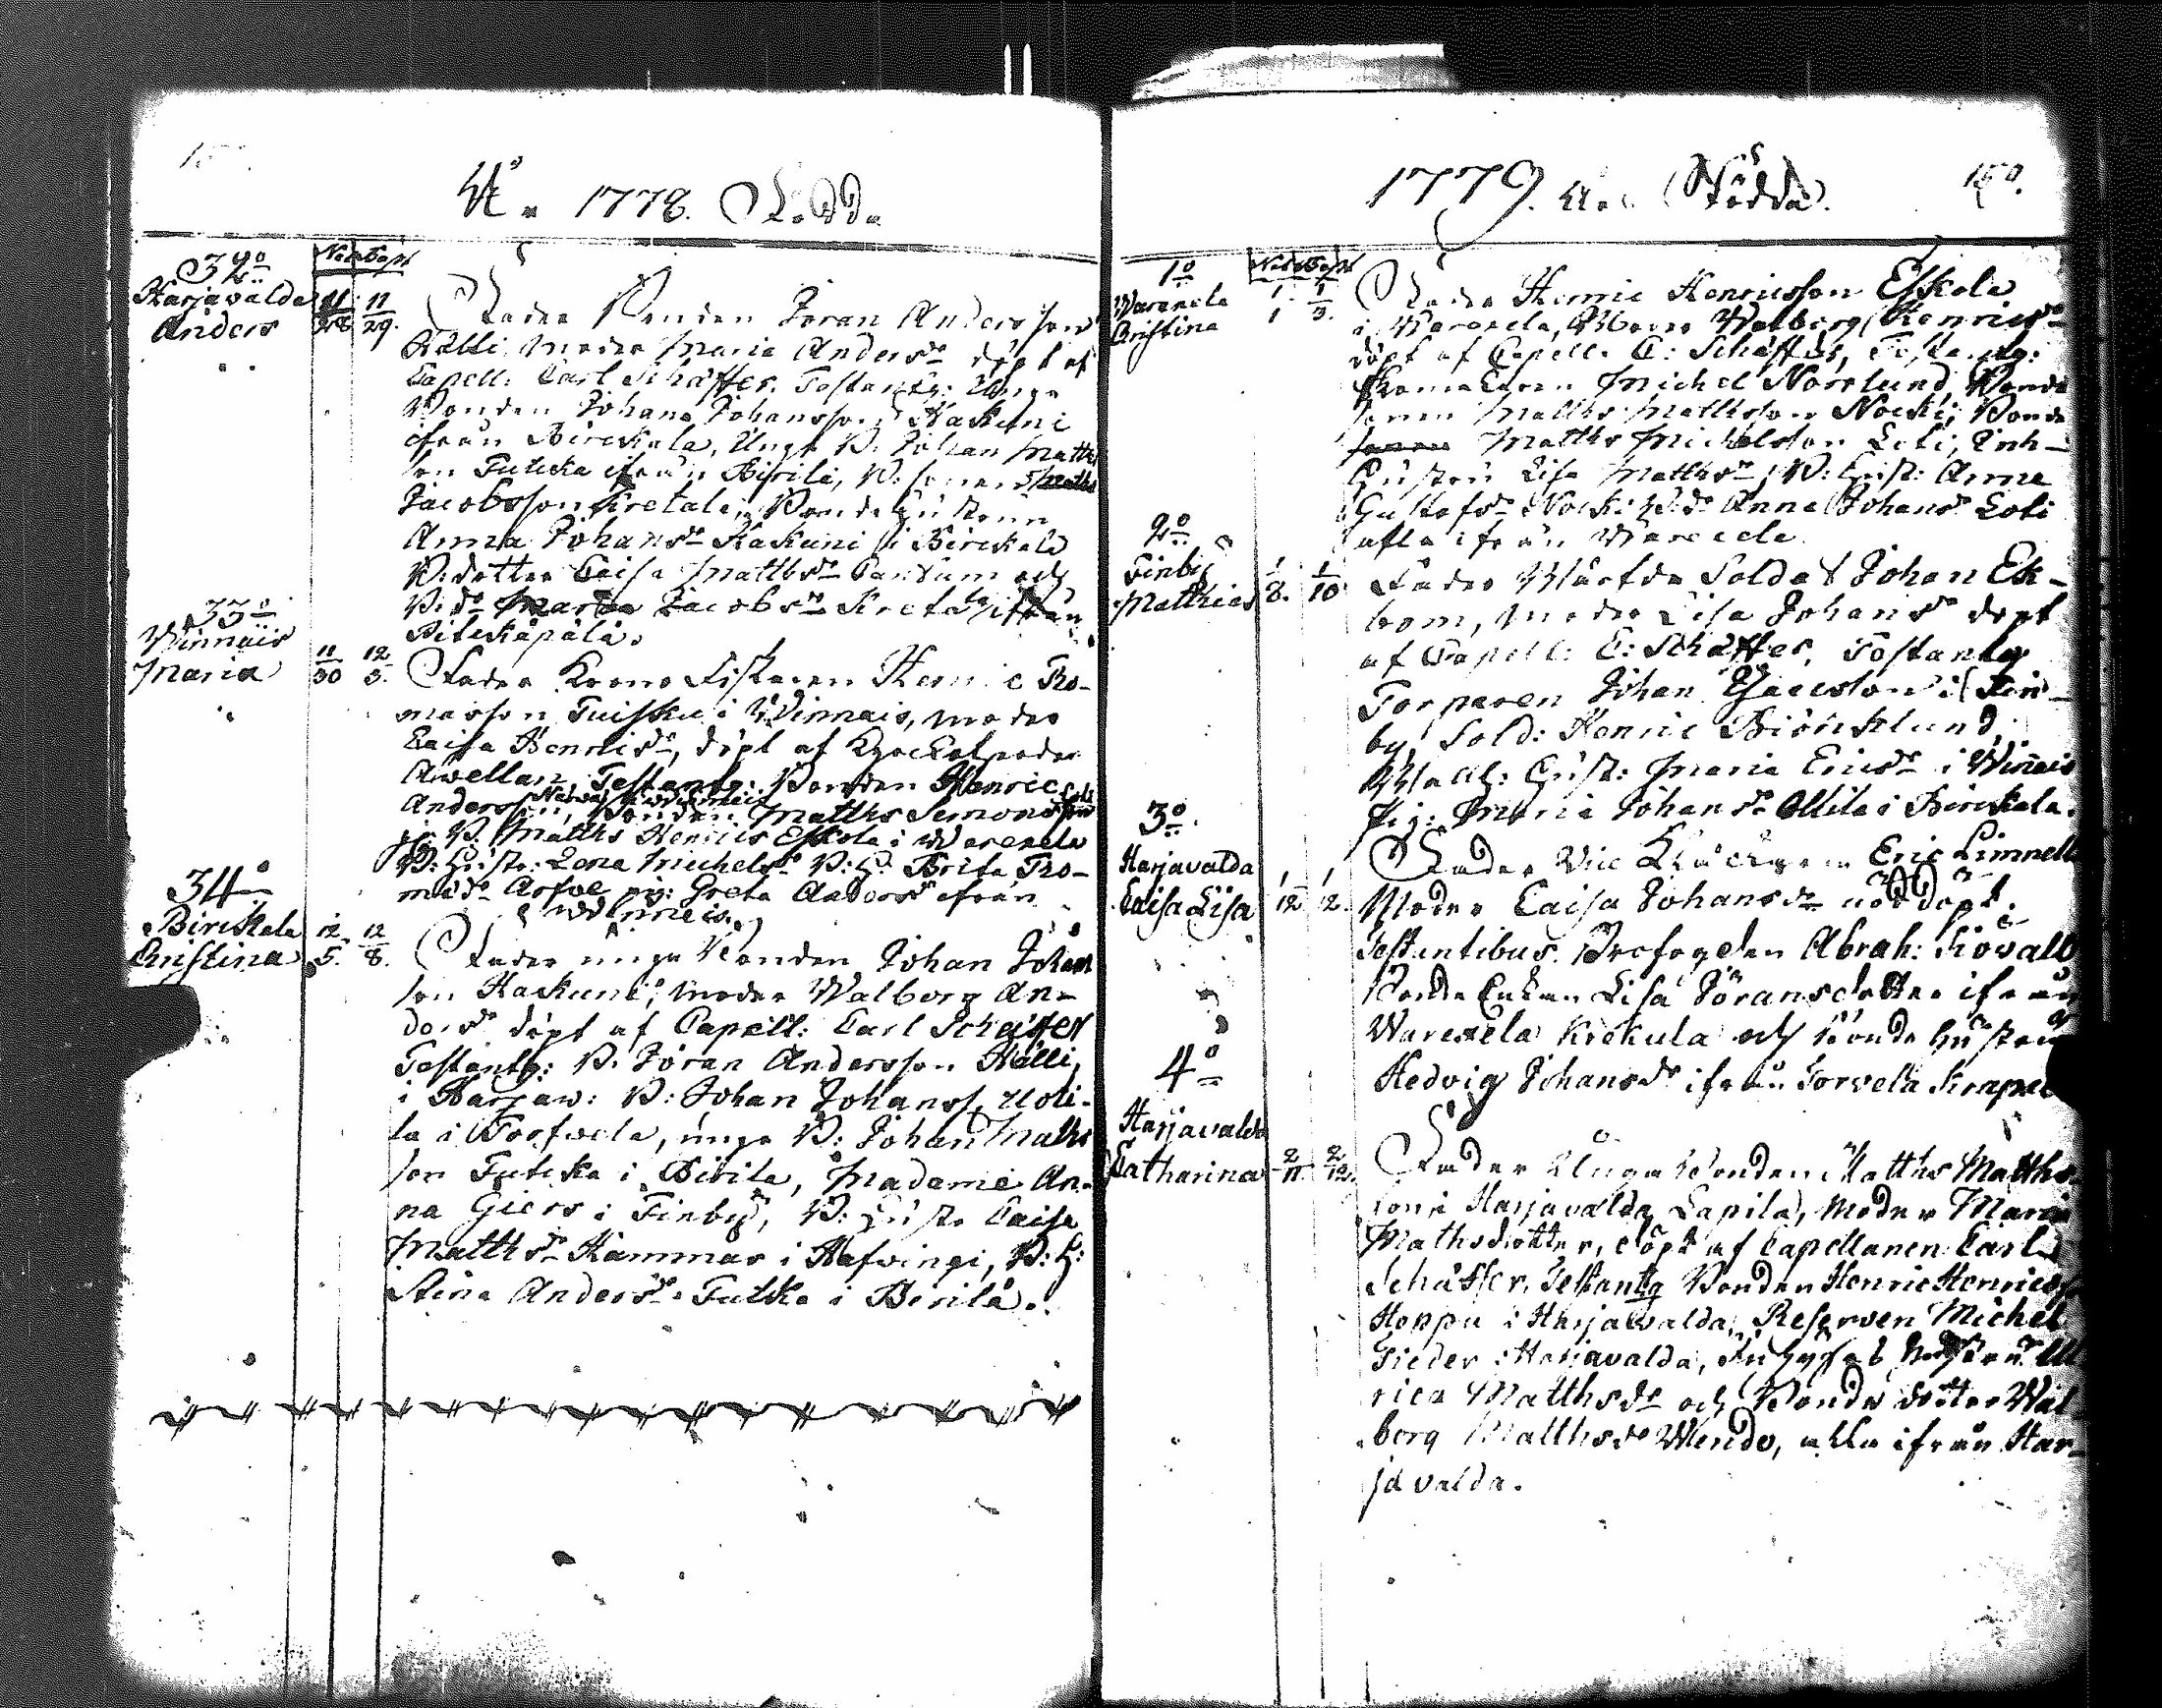 Åhr 1778. Födde
32o
Harjavalda
Anders
Nat. Bapt
11/28 11/29.
Fader Bonden Jöran Andersson
Hälli, Moder Maria Andersdr döpt af
Capell: Carl Schäffer. Testantg: Unga
Bonden Johan Johansson Kaskuni
ifrån Birckala, Unge B. Johan Matths
son Tutcka ifrån Birilä, B. sonen Matths
Jacobsson Kretala, Bondehustrun
Anna Johansdr Kaskuni i Birckala
B: dotter Caisa Matthsdr och
B: dr Maria Jacobsdr Kretala ifrån
33o
Winnais
Maria
11/30 12/3.
Fader Krono Fiskaren Henric Tho-
masson Tuisku i Winnais, moder
Caisa Henricsdr, döpt af
Awellan Testantg: Bonden Henric
Andersson, Bonden Matths Simonsson
B. Matths Henrics Eskola i Warexela
B: Hustr: Lena Michelsdr B: H. Brita Tho-
madr Arfve pig: Greta Andersdr ifrån
Winnais.
34o
Birckala
Christina
12/5. 12/8.
Fader unga Bonden Johan Johans
son Kaskuni, moder Walborg An-
dersdr döpt af Capell: Carl Schäffer
Testantg: B. Jöran Andersson Hälli,
i Harjaw: B: Johan Johanss. Uoti-
la i Torfvela, unga B: Johan Matths
son Tutcka i Birila, Madame An-
na Giers i Finby, B: Hustr Caisa
Matthsdr Hammar i Hafvingi, B: H:
Stina Andersdr Tutka i Birilä.
1779. Födda
150.
1o
Warexela
Christina
Nat. Bapt
1/1 1/3.
Fader Henric Henricsson Eskola
i Warexela, Moder Walborg Henricsdr
döpt af Capell. C: Schäffer, Testantg:
Michel Norrlund, Bonde
sonen Matths Mathsson Nocki, Bonde
sonen Matths Michelsson Loti, Inh-
Hustru Lisa Matthsdr, B: Hust: Anna
Gustafsdr Nocki B: dr Anna Johansdr Loti
alla ifrån Warexela.
2o
Finby
Matthias
1/8. 1/10
Fader Wärfda Soldat Johan Ek-
bom, moder Lisa Johansdr döpt
af Capell: C: Schäffer, Testantg
Torparen Johan Isacsson i Fin-
by Sold: Henric Biörcklund,
Hust: Maria Ericsdr i Winnais
Pig: Maria Johansdr Ollila i Birckala.
3o.
Harjavalda
Caisa Lisa
1/12 1/12.
Fader Vice Klåckaren Eric Limnell
Moder Caisa Johansdr nöddöpt.
Testantibus. Profogden Abrah: Kiövall
Bonde Enkan Lisa Jöransdotter ifrån
Warexela Krekula och Bonde hustrun
Hedvig Johansdr ifrån Torvela
4o
Harjavalda
Catharina
2/11 2/12.
Fader Unga Bonden Matths Matths
son i Harjavalda Lapila, moder Maria
Mathsdotter, döpt af Capellanen Carl
Schäffer, Testantg Bonden Henric Henricss
Hoppu i Harjavalda, Reserven Michel
Frieder i Harjavalda, Inhyses hustrun Ul
rica Matthsdr och Bonde dotter Wal
borg Matthsdr Mendo, alla ifrån Har-
javalda.